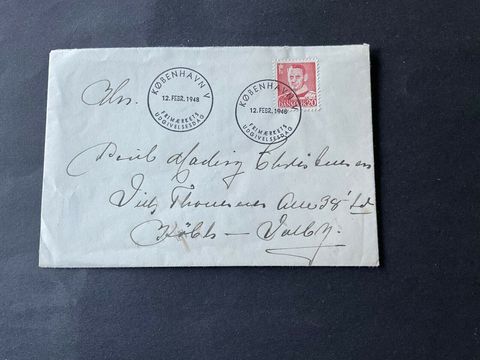 KØBENHAVN V
12. FEBR. 1948
FRIMÆRKETS
UDGIVELSESDAG
KØBENHAVN V
12. FEBR. 1948
FRIMÆRKETS
UDGIVELSESDAG
DANMARK 20
Hrs.
Poul Christensen
Vilh. Thomsens Alle 38' td
Kbh — Valby.